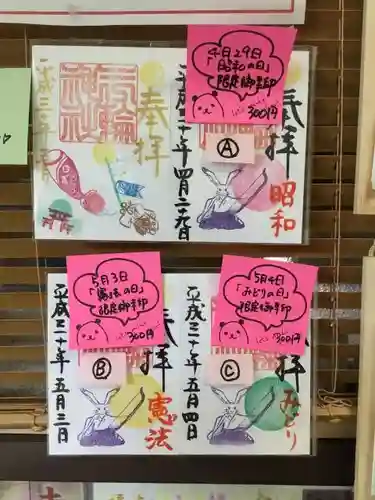 4月29日
「昭和の日」
限定御朱印
300円
Ⓐ
奉拝
平成三十年四月二十九日
昭和
奉拝
5月3日
「憲法の日」
限定御朱印
300円
Ⓑ
拝
平成三十年五月三日
憲法
5月4日
「みどりの日」
限定御朱印
300円
Ⓒ
拝
平成三十年五月四日
みどり